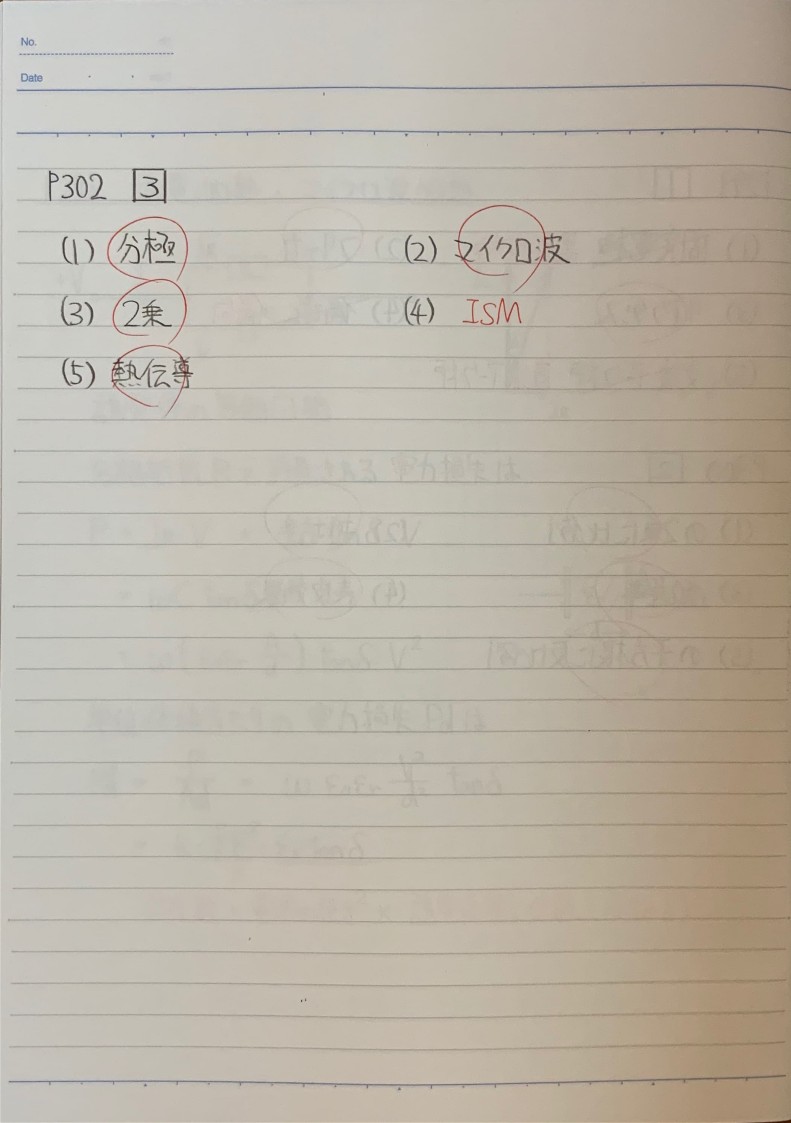 No.
Date
P302 3
(1) 分極 (2) マイクロ波
(3) 2乗 (4) ISM
(5) 熱伝導